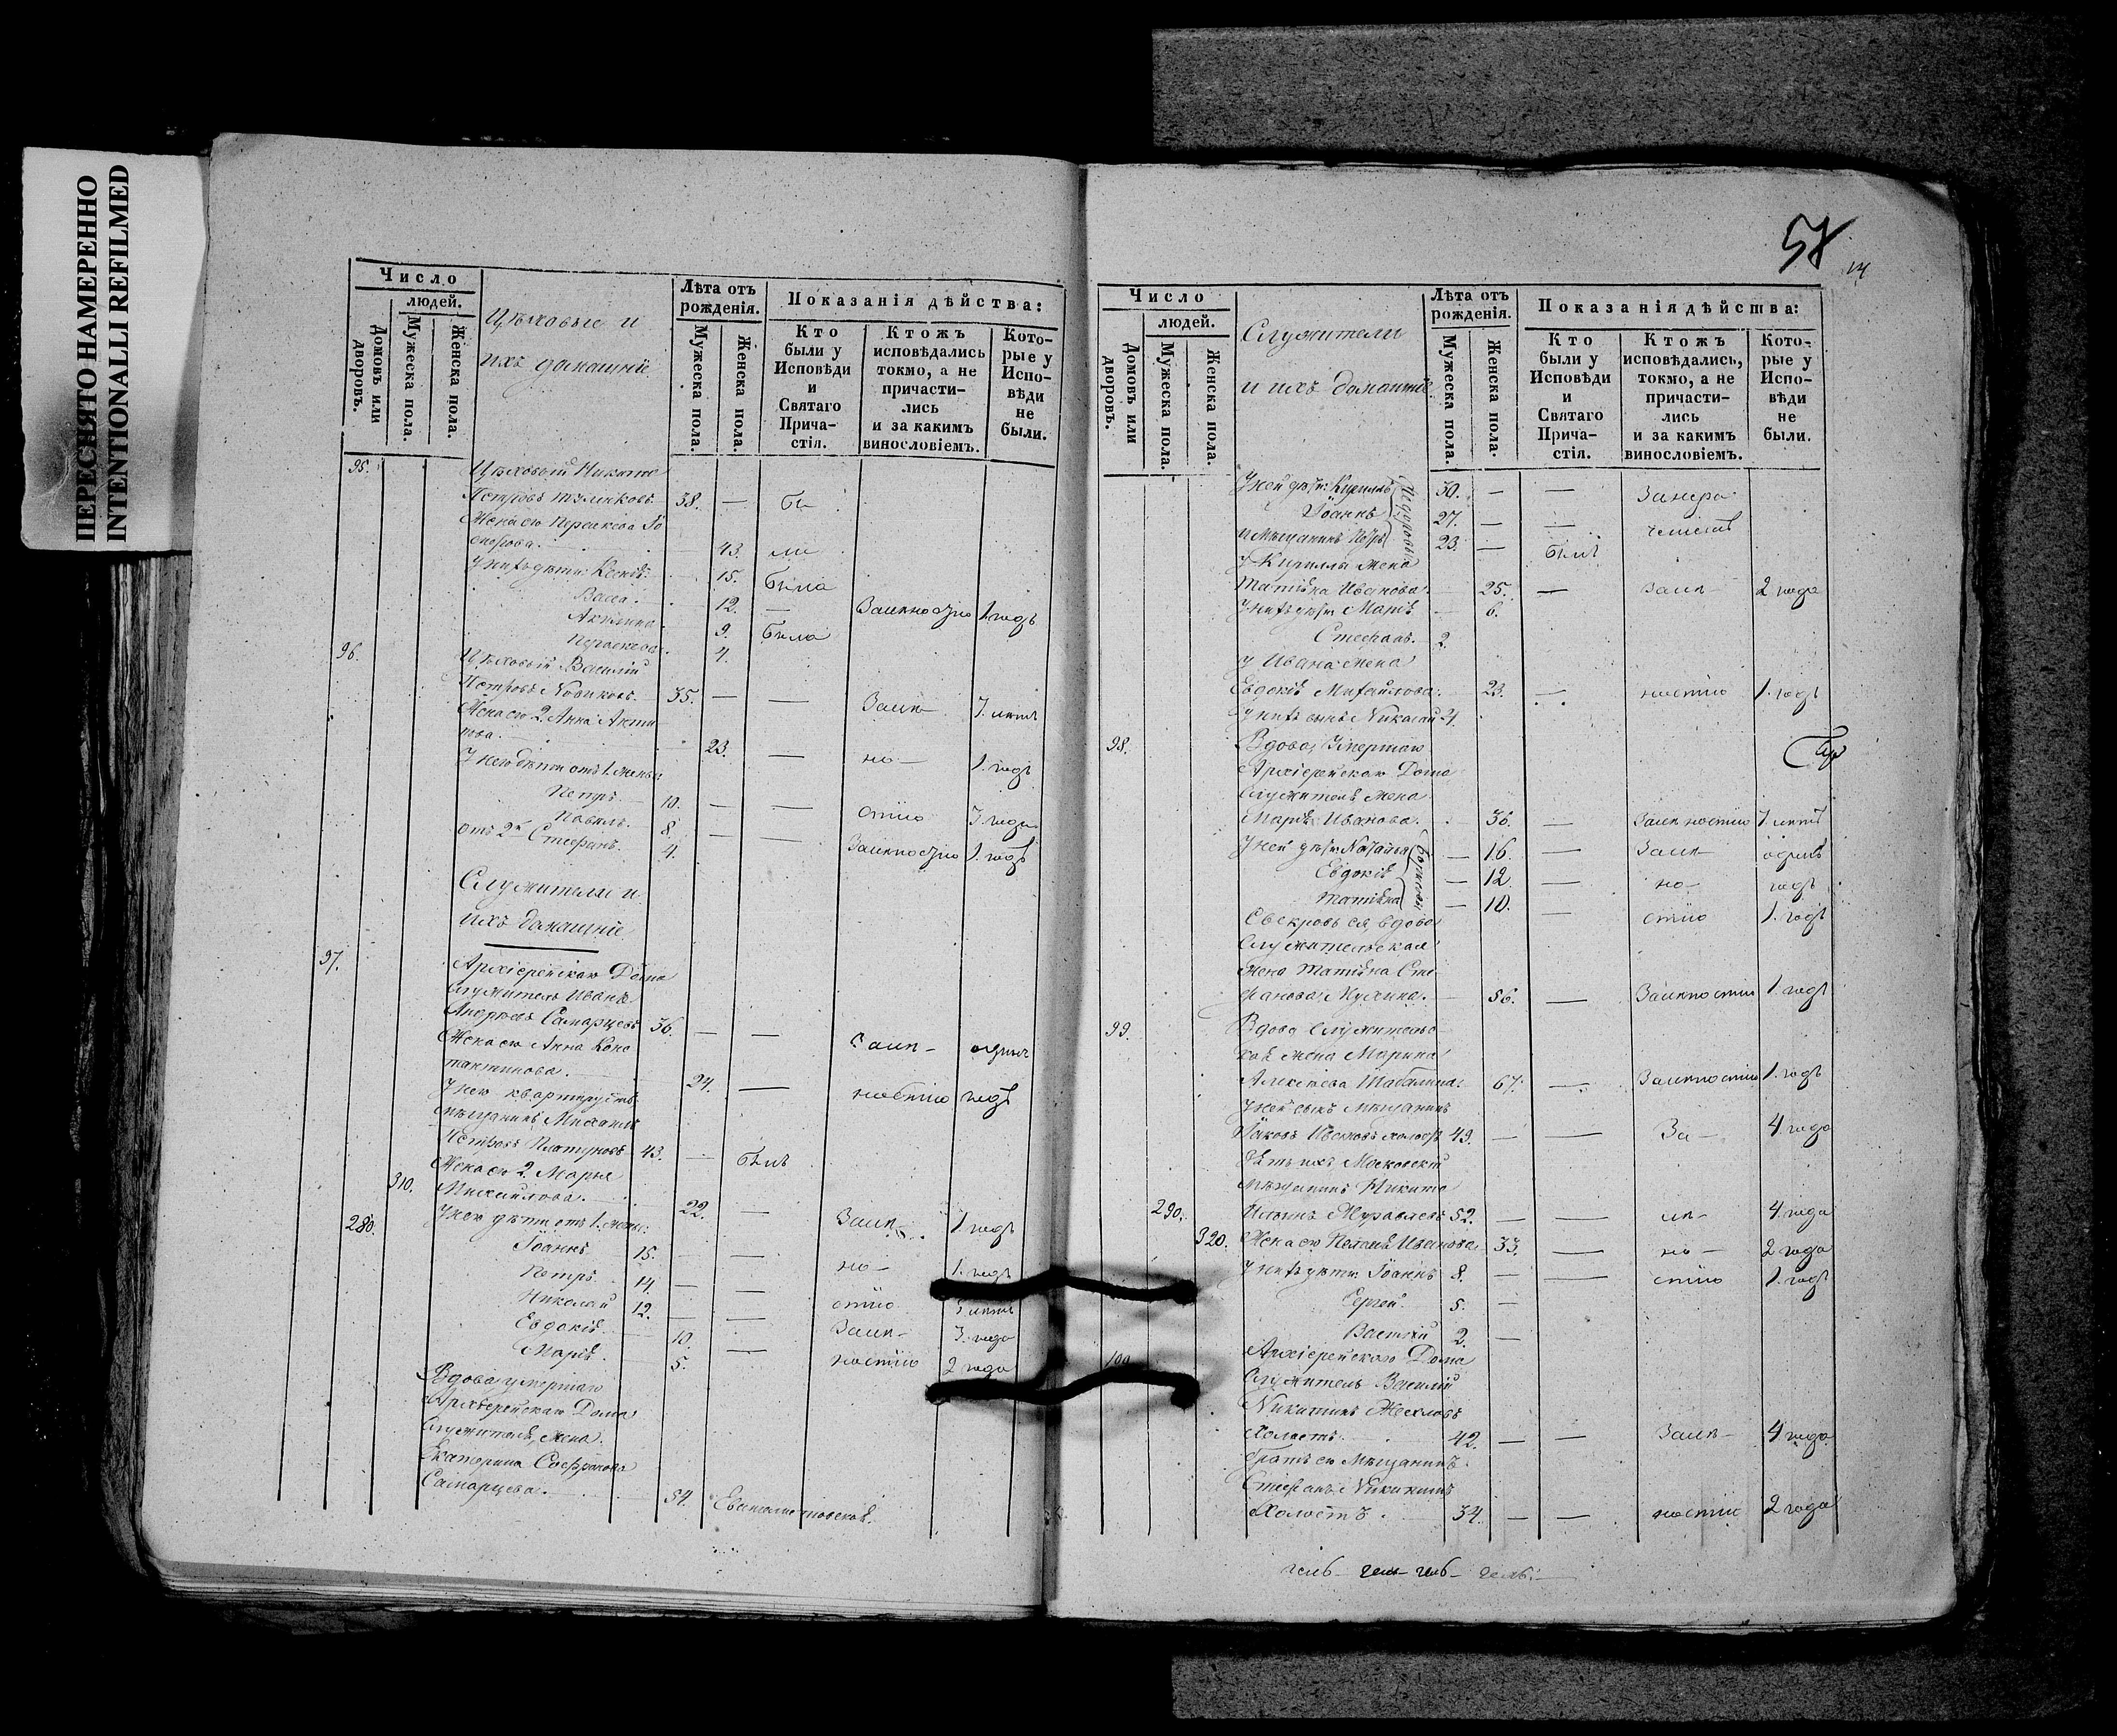 ПЕРЕСНЯТО НАМЕРЕННО
INTENTIONALLI REFILMED
Число
людей.
Домовъ или дворовъ.
Мужеска пола.
Женска пола.
Цѣховые и
ихъ домашніе
Лѣта отъ рожденія.
Мужеска пола.
Женска пола.
Показанія дѣйства:
Кто были у Исповѣди и Святаго Прича-стія.
Ктожъ исповѣдались токмо, а не причасти-лись и за какимъ винословіемъ.
Кото-рые у Испо-вѣди не были.
95. Цѣховый Никита
Петровъ 38. — бы
Жена его Параскева
43. ли
У нихъ дѣти: 15. была
Васса. 12. — Заикностію 1. годъ
Акилина 9. была
Параскева. 4.
96. Цѣховый Василій
Петровъ Новиковъ. 35. — — Заик- 7. лѣтъ
Жена его 2. Анна Анти
пова. 23. — но- 1. годъ
У него дѣти отъ 1. жены
Петръ. 10. — — стію 3. года
Павелъ. 8. — —
отъ 2й Стефанъ. 4. Заикностію 1. годъ
Служители и
ихъ домашніе
97. Архіерейскаго Дома
Служитель Иванъ
Андреевъ Самарцевъ 36. — — Заик- одинъ
Жена его Анна Конс
тантинова. 24. — ностію годъ
У него квартируетъ
мѣщанинъ Михаилъ
Петровъ Платуновъ 43. — былъ
Жена его 2. Марья
310. Михаилова. 22. — Заик- 1 годъ
280. У него дѣти отъ 1. жены:
Іоаннъ 15. — но- 1. годъ
Петръ. 14. — — стію лѣтъ
Николай 12. — — Заик- 3. года
Евдокія 10. — ностію 2 года
Марія. 5.
Вдова умершаго
Архіерейскаго Дома
Служителя, жена.
Екатерина
Самарцева. 54.
58
Число
людей.
Домовъ или дворовъ.
Мужеска пола.
Женска пола.
Служители
и ихъ домашніе
Лѣта отъ рожденія.
Мужеска пола.
Женска пола.
Показанія дѣйства:
Кто были у Исповѣди и Святаго Прича-стія.
Ктожъ исповѣдались, токмо, а не причасти-лись и за какимъ винословіемъ.
Кото-рые у Испо-вѣди не были.
У ней дѣти: Кириллъ 30. — —
Іоаннъ 27. — —
и Мѣщанинъ Петръ 23. — былъ
у Кирилла жена
Татіана Иванова. 25. — Заик- 2 года
У нихъ дѣти Марія 6.
Стефанъ. 2.
у Ивана жена
Евдокія Михайлова. 23. — ностію 1. годъ
У нихъ сынъ Николай 4.
98. Вдова, Умершаго
Архіерейскаго Дома
Служителя жена
Марія Иванова. 36. — Заикностію 7. лѣтъ
У ней дѣти Наталья — 16. — Заик- одинъ
Евдокія — 12. — но- годъ
Татіана — 10. — стію 1. годъ
Свекровь ея, вдова
Служительская
жена Татіана Сте
фанова 56. — Заикностію 1. годъ
99. Вдова Служительс
кая жена Марина
Алексѣева 67. — Заикностію 1. годъ
У ней сынъ мѣщанинъ
Іаковъ Ивановъ холостъ 49. — — За- 4. года
Зять ихъ Московскій
мѣщанинъ Никита
290. Ильинъ Журавлевъ 52. — — ик- 4. года
320. Жена его Пелагія Иванова 33. — но- 2 года
У нихъ дѣти: Іоаннъ 8. — — стію 1. годъ
Сергей. 5. —
Василій 2. —
100 Архіерейскаго Дома
Служитель Василій
Никитинъ
Холостъ. 42. — — Заик- 4 года
Братъ его Мѣщанинъ
Стефанъ Никитинъ
Холостъ. 34. — — ностію 2 года